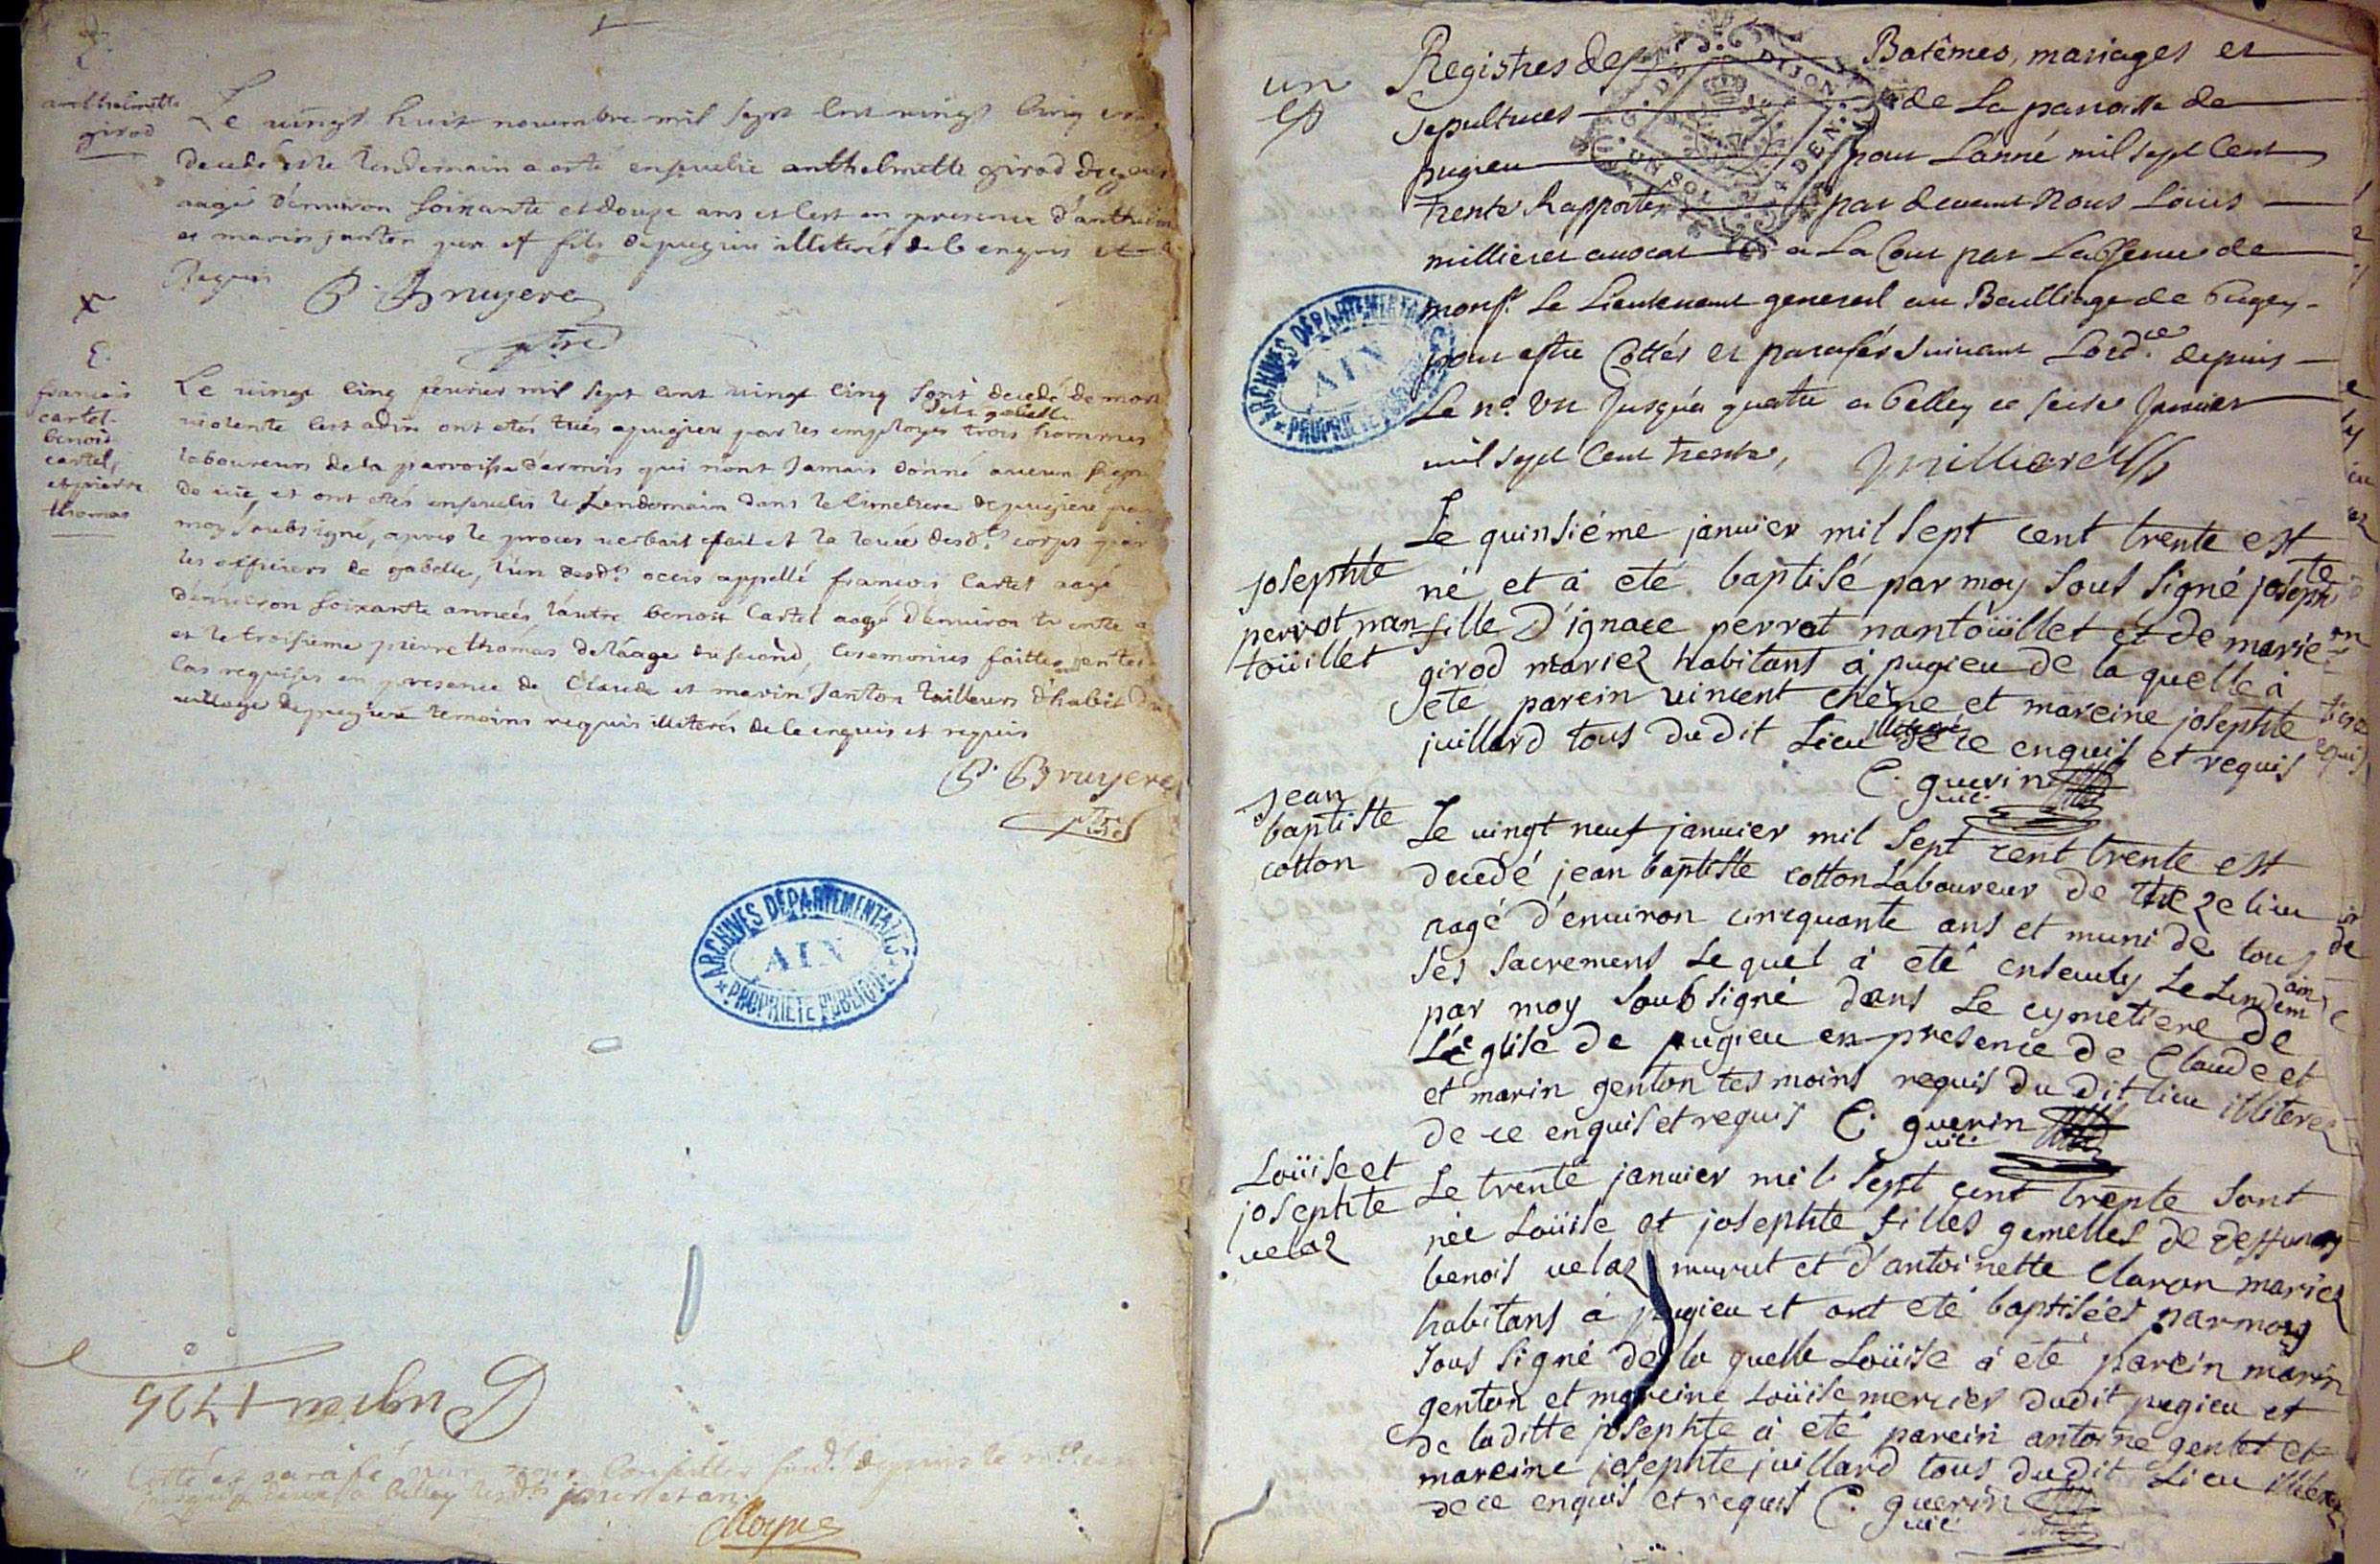 anthelmette
girod
Le vingt huit novembre mil sept cent vingt cinq
decedé et le lendemain a esté ensevelie anthelmette girod
aagé d'environ soixante et douze ans et c'est en presence d'anthelme
et marin janton pere et fils de pugieu illiterés de ce enquis et
Requis P. Bruyere
ptre
francois
cartel
benoit
cartel,
et pierre
thomas
Le vingt cinq fevrier mil sept cent vingt cinq sont decedé de mort
violente c'est a dire ont etés tués a pugieu par les employés de la gabelle trois hommes
laboureurs de la parroisse d'armix qui n'ont jamais donné aucun signe
de vie, et ont etés ensevelis le Lendemain dans le cimetiere de pugieu par
moy soubsigné, apres le proces verbail fait et la levée desdts corps par
les officiers de gabelle, l'un desdts occis appellé francois Cartel aagé
d'environ soixante années, l'autre benoit Cartel aagé d'environ trente
et le troisieme pierre thomas de l'aage du second, ceremonies faittes
cas requises en presence de Claude et marin Janton tailleurs d'habit du
village de pugieu temoins requis illiterés de ce enquis et requis
P. Bruyere
ptre
ARCHIVES DÉPARTEMENTALES
AIN
PROPRIÉTÉ PUBLIQUE
Pugieu 1725
Cotté et parafé par nous Conseiller depuis le no. un
jusqu'a deux a Belley lesdts jour et an
un
Registres des Batêmes, mariages et
Sepultures de La paroisse de
pugieu pour L'anné mil sept Cent
trente Rapportés par devant Nous Louis
millieret avocat a La Cour par L'absence de
monsr. Le Lieutenant general au Bailliage de Bugey
pour estre Cottés et parafés suivant L'ordce. depuis
Le no. un Jusqu'a quatre a Belley ce seise Janvier
mil sept Cent trente, Millieret
ARCHIVES DÉPARTEMENTALES
AIN
PROPRIÉTÉ PUBLIQUE
G. DE DIJON
UN SOL 4 DEN.
josephte
perrot nan
toüillet
Le quinsiéme janvier mil sept cent trente est
né et à eté baptisé par moy sous signé josephte
fille D'ignace perrot nantoüillet et de marie
girod mariez habitans à pugieu de la quelle à
eté parein vincent chêne et mareine josephte
juillard tous dudit Lieu illiterés de ce enquis et requis
C. guerin
vic.
jean
baptiste
cotton
Le vingt neuf janvier mil sept cent trente est
decedé jean baptiste cotton Laboureur de thezelieu
aagé d'environ cincquante ans et muni de tous
ses sacremens Le quel à eté ensevely Le Lendemain
par moy soubsigné dans Le cymetiere de
L'église de pugieu en presence de Claude et
et marin genton tesmoins requis du dit lieu illiterez
de ce enquis et requis C. guerin
vic.
Loüise et
josephte
velaz
Le trente janvier mil sept cent trente sont
née Loüise et josephte filles gemelles de deffunct
benois velaz murut et d'antoinette Claron mariez
habitans à pugieu et ont eté baptisées par moy
sous signé de la quelle Loüise à eté parein marin
genton et mareine Loüise mercier dudit pugieu et
de laditte josephte à eté parein antoine gentet et
mareine josephte juillard tous dudit Lieu illiterez
de ce enquis et requis C. guerin
vic.